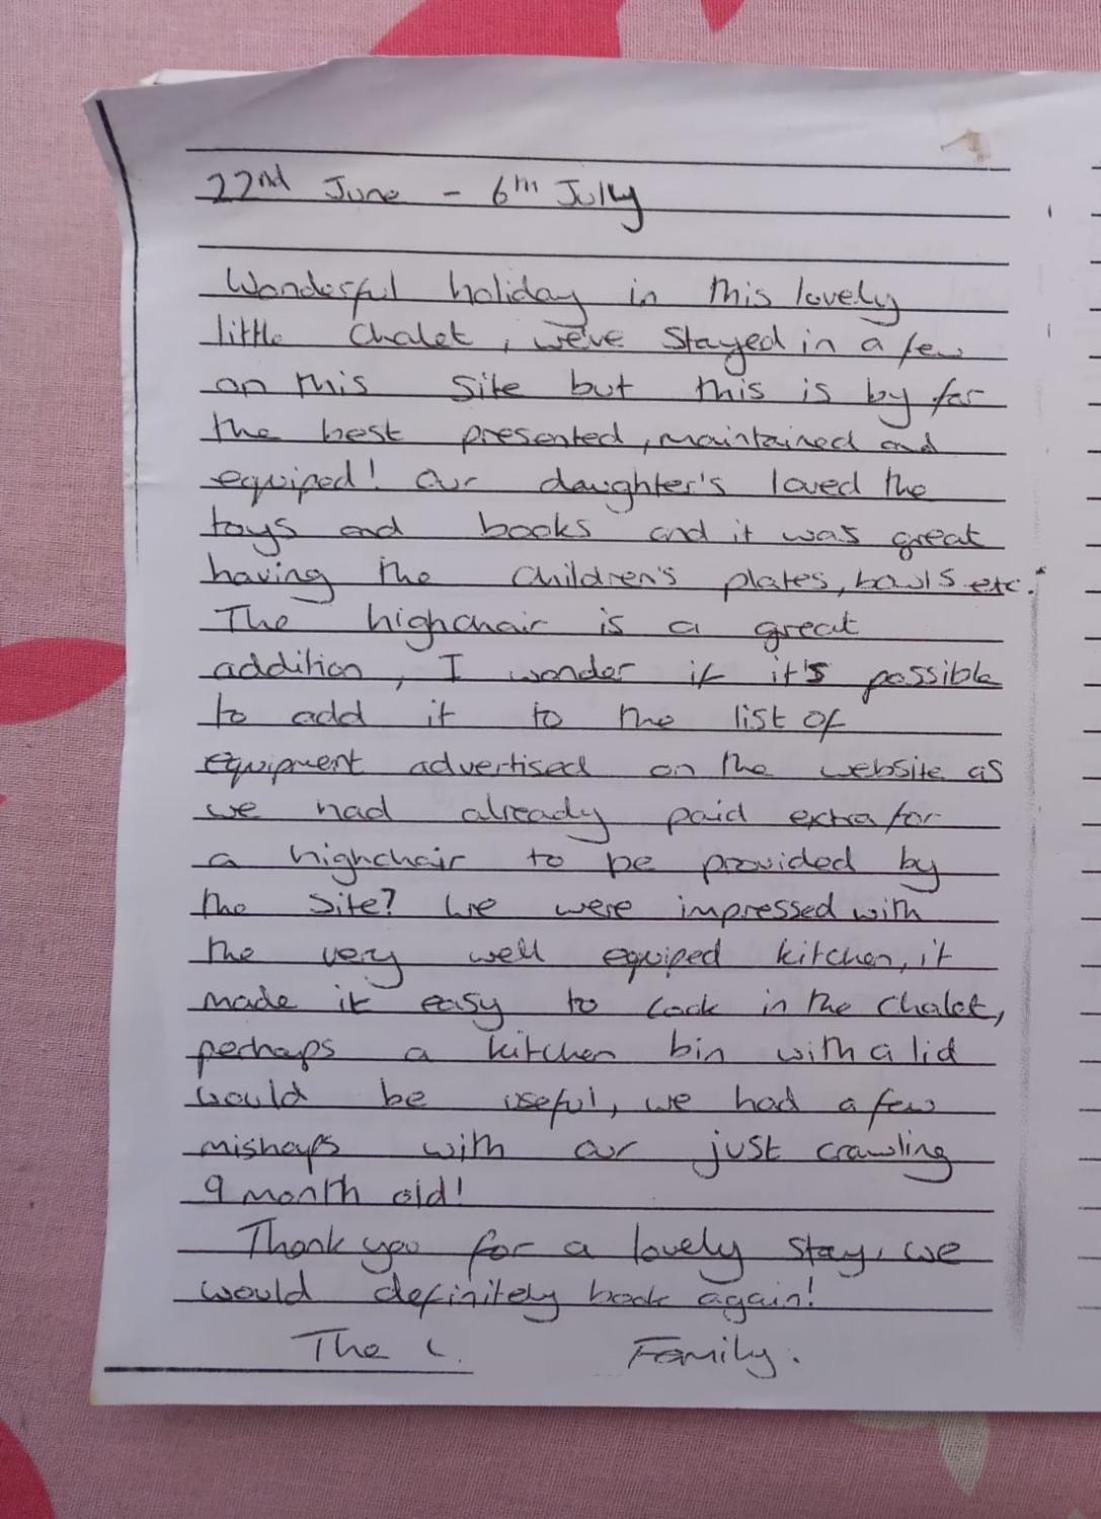 22nd June - 6th July
Wonderful holiday in this lovely
little chalet, we've stayed in a few
on this site but this is by far
the best presented, maintained and
equiped! Our daughter's loved the
toys and books and it was great
having the children's plates, bowls etc.
The highchair is a great
addition, I wonder if it's possible
to add it to the list of
equipment advertised on the website as
we had already paid extra for
a highchair to be provided by
the site? We were impressed with
the very well equiped kitchen, it
made it easy to cook in the chalet,
perhaps a kitchen bin with a lid
would be useful, we had a few
mishaps with our just crawling
9 month old!
Thank you for a lovely stay, we
would definitely book again!
The Family.